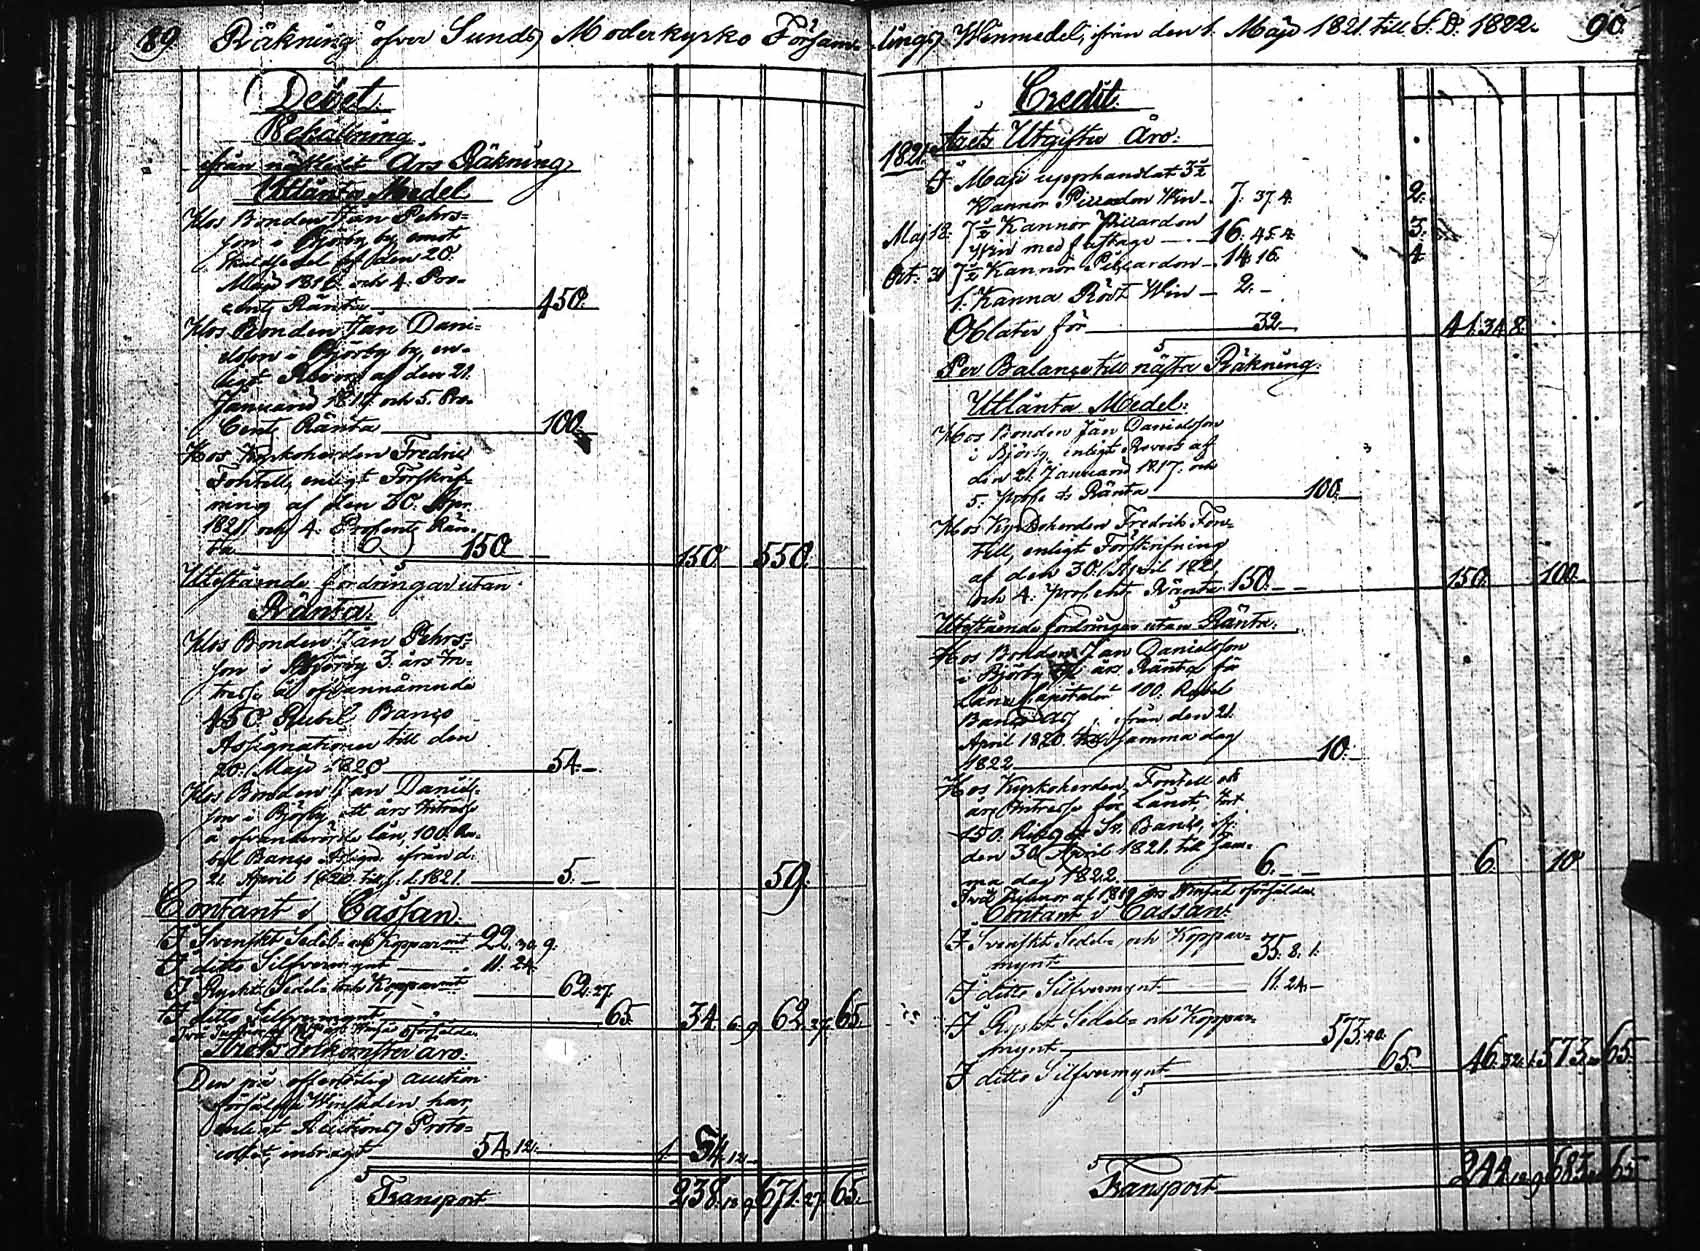 89 Räkning öfver Sunds Moderkyrko Församlings Winmedel, ifrån den 1. Maji 1821 till S. D. 1822. 90.
Debet.
Behållning
ifrån nästledit Års Räkning
Utlånta Medel
Hos Bonden Jan Pehrs-
son i Björby by, emot
Skuldsedel af den 20.
Maji 1816 och 4. Pro-
cent Ränta 450.
Hos Bonden Jan Dani-
elsson i Björby by, en-
ligt Revers af den 21.
Januarii 1817. och 5. Pro-
Cents Ränta 100.
Hos Kyrkoherden Fredric
Fontell, enligt Förskrif-
ning af den 30. Apr.
1821 och 4. Procents Rän-
ta 150. 150. 550.
Utestående fordringar utan
Ränta.
Hos Bonden Jan Pehrs-
son i Björby 3. års In-
tresse å ofvannämnde
450 Rubel Banco
Assignationer till den
20. Maji 1820 54.-
Hos Bonden Jan Daniels-
son i Björby, ett års Intresse
å ofvanberörde lån, 100. Ru-
bel Banco Assign. ifrån d.
21. April 1820. till s. d. 1821. 5.- 59.
Contant i Cassan.
I Svenskt Sedel- och Kopparmt 22. 30. 9.
I ditto Silfvermynt 11. 24.
I Ryskt Sedel- och Kopparmt 62. 27.
I ditto Silfvermynt 65. 34. 6. 9. 62. 27. 65.
Årets Inkomster äro:
Den på offentelig auction
försålde Winsäden har,
enligt Auctions Proto-
collet, inbragt 54. 12. 54. 12.
Transport 238. 18. 9. 671. 27. 65.
Credit.
Årets Utgifter äro:
1821. I Maji upphandlat 3 1/2
Kannor Piccardon Win 7. 37. 4. 2.
Maj 18. 7 1/2 Kannor Piccardon
Win med fastage 16. 45. 4. 3.
Oct. 31 7 1/2 Kannor Piccardon 14. 16. 4.
1. Kanna Rödt Win 2.-
Oblater för 32. 41. 34. 8.
Per Balance till nästa Räkning.
Utlånta Medel:
Hos Bonden Jan Danielsson
i Björby, enligt Revers af
den 21. Januarii 1817. och
5. procts Ränta 100.
Hos Kyrkoherden Fredrik Fon-
tell, enligt Förskrifning
af den 30. April 1821
och 4. procent Ränta 150. 150. 100.
Utestående fordringar utan Ränta:
Hos Bonden Jan Danielsson
i Björby års Ränta för
Låne Capitalet 100. Rubel
Banco ifrån den 21.
April 1820. till samma dag
1822 10.
Hos Kyrkoherden Fontell ett
års Intresse för Lånet,
150. Riksd. Sv. Banco, af
den 30. April 1821. till sam-
ma dag 1822. 6. 6. 10.
Contant i Cassan:
I Svenskt Sedel- och Koppar-
mynt 35. 8. 1.
I ditto Silfvermynt 11. 24.-
I Ryskt Sedel- och Koppar-
mynt 573. 40.
I ditto Silfvermynt 65. 46. 32. 1. 573. 65.
Transport 244. 18. 9 683. 65.